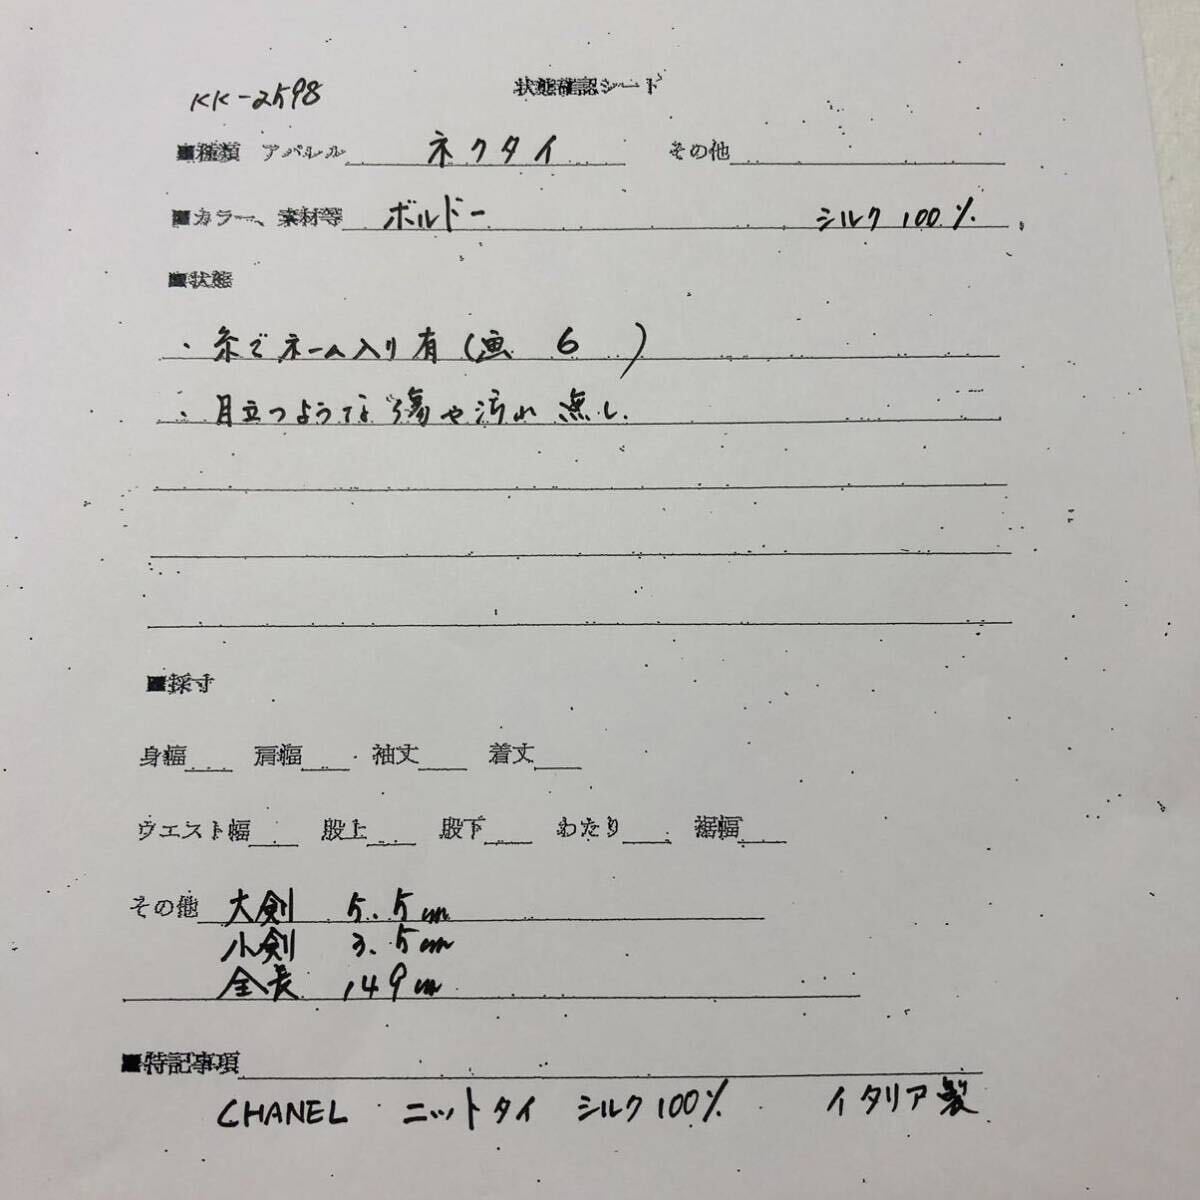 KK-2598
状態確認シート
■種類 アパレル ネクタイ その他
■カラー、素材等 ボルドー シルク100%
■状態
・糸でネーム入り有(画 6 )
・目立つような傷や汚れ無し.
■採寸
身幅 肩幅 袖丈 着丈
ウエスト幅 股上 股下 わたり 裾幅
その他 大剣 5.5cm
小剣 3.5cm
全長 149cm
■特記事項
CHANEL ニットタイ シルク100% イタリア製